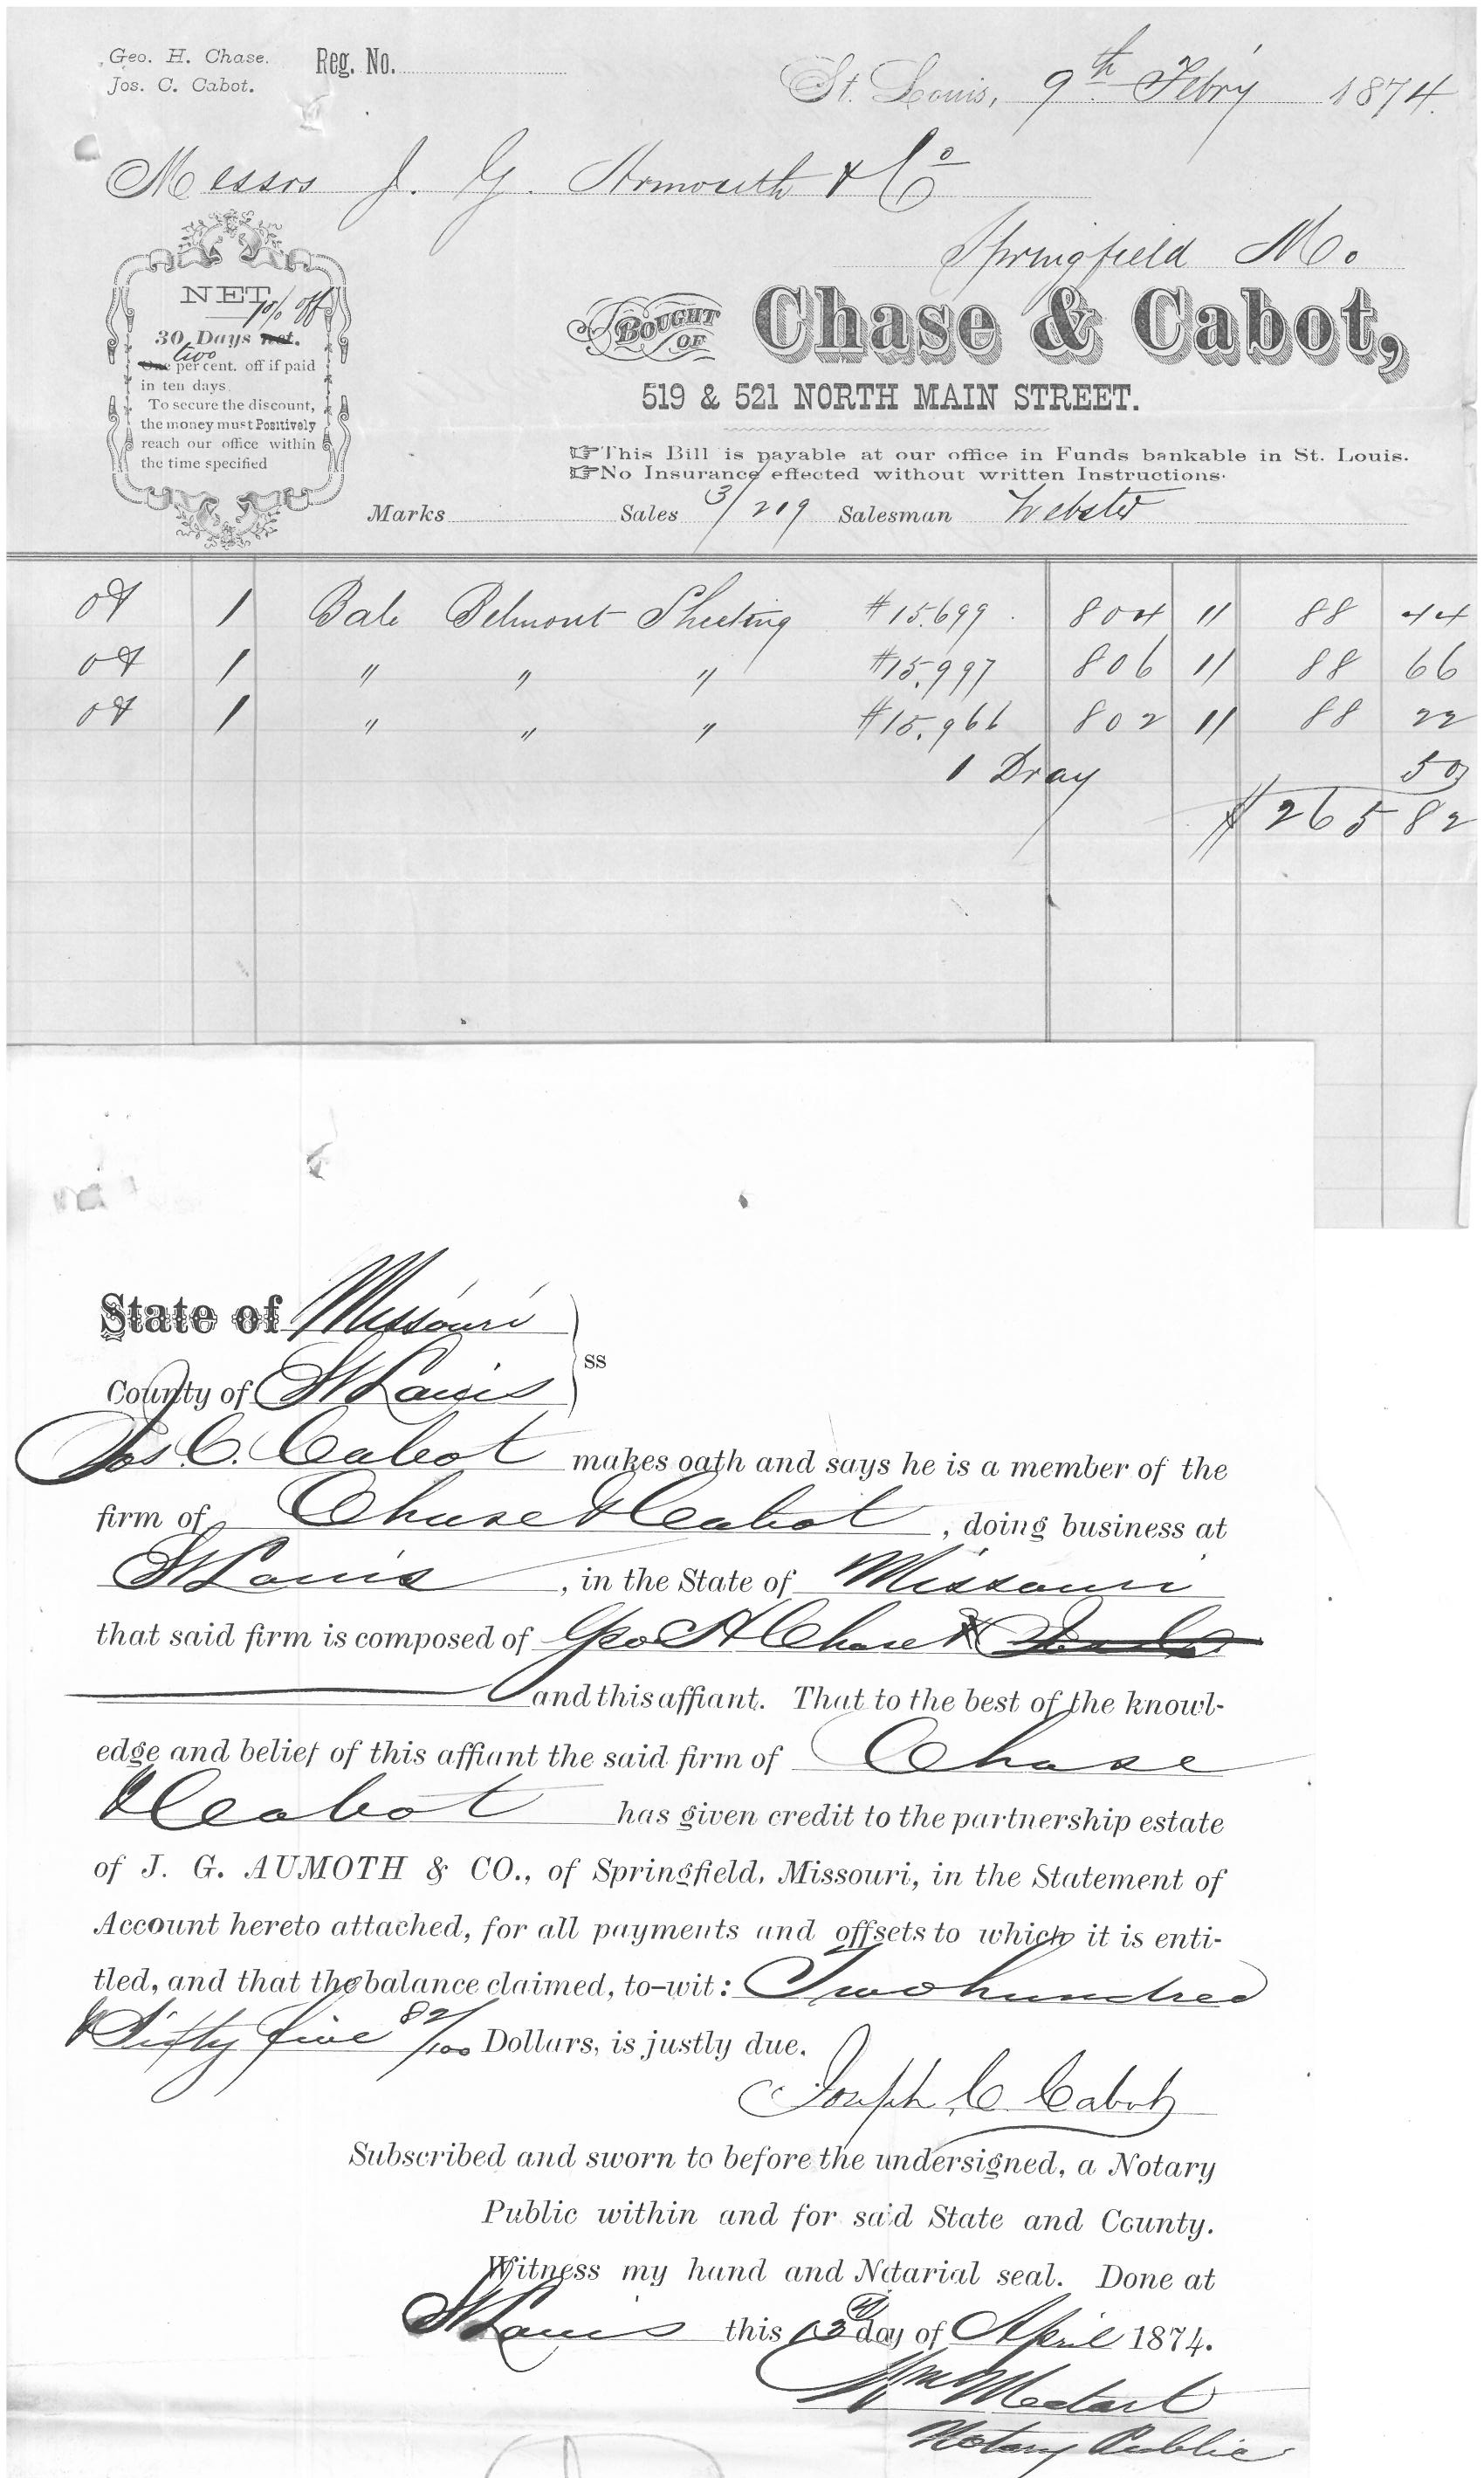 Geo. H. Chase.
Jos. C. Cabot.
Reg. No.
St. Louis, 9th Febry 1874.
Messrs J. G. Armouth & Co
Springfield Mo.
NET
30 Days net.
two
One per cent. off if paid
in ten days.
To secure the discount,
the money must Positively
reach our office within
the time specified
BOUGHT OF Chase & Cabot,
519 & 521 NORTH MAIN STREET.
☞This Bill is payable at our office in Funds bankable in St. Louis.
☞No Insurance effected without written Instructions.
Marks Sales 3/219 Salesman Webster
1 Bale Belmont Sheeting #15.699 804 11 88 44
1 " " " #15.997 806 11 88 66
1 " " " #15.966 802 11 88 22
1 Dray 50
$265 82
State of Missouri
ss
County of St Louis
Jos C. Cabot makes oath and says he is a member of the
firm of Chase & Cabot, doing business at
St Louis, in the State of Missouri
that said firm is composed of Geo H Chase &
and this affiant. That to the best of the knowl-
edge and belief of this affiant the said firm of Chase
& Cabot has given credit to the partnership estate
of J. G. AUMOTH & CO., of Springfield, Missouri, in the Statement of
Account hereto attached, for all payments and offsets to which it is enti-
tled, and that the balance claimed, to-wit: Two hundred
& Sixty five 82/100 Dollars, is justly due.
Joseph C Cabot
Subscribed and sworn to before the undersigned, a Notary
Public within and for said State and County.
Witness my hand and Notarial seal. Done at
St Louis this 13th day of April 1874.
Wm Medart
Notary Public